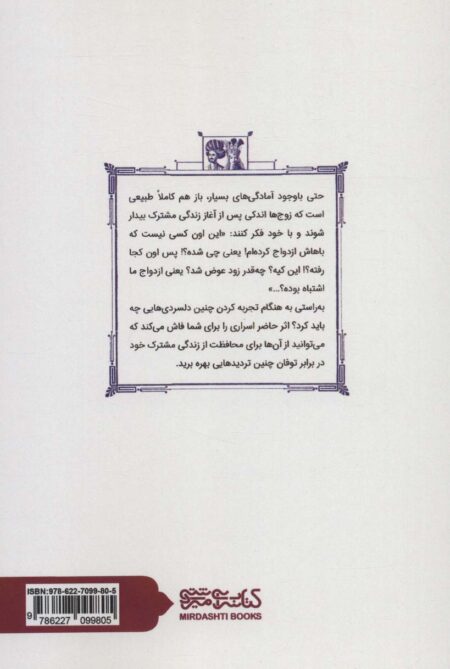 حتی باوجود آمادگی‌های بسیار، باز هم کاملاً طبیعی
است که زوج‌ها اندکی پس از آغاز زندگی مشترک بیدار
شوند و با خود فکر کنند: «این اون کسی نیست که
باهاش ازدواج کرده‌ام! یعنی چی شده؟! پس اون کجا
رفته؟! این کیه؟ چه‌قدر زود عوض شد؟ یعنی ازدواج ما
اشتباه بوده؟...»
به‌راستی به هنگام تجربه کردن چنین دلسردی‌هایی چه
باید کرد؟ اثر حاضر اسراری را برای شما فاش می‌کند که
می‌توانید از آن‌ها برای محافظت از زندگی مشترک خود
در برابر توفان چنین تردیدهایی بهره برید.
ISBN: 978-622-7099-80-5
9 786227 099805
کتابسرای میردشتی
MIRDASHTI BOOKS